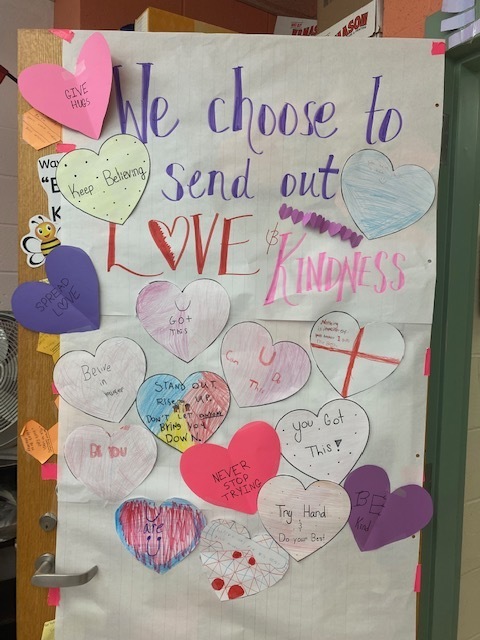 MASON
We choose to
send out
LOVE &
KINDNESS
GIVE
HUGS
Keep Believing
SPREAD
LOVE
U
GOT
THIS
Belive
in
U
Can Do
This
STAND OUT
RISE UP
DON'T LET
Bring You
DOWN.
BE YOU
NEVER
STOP
TRYING
You Got
This!
Try Hard
&
Do your Best
BE
Kind
U
ARE